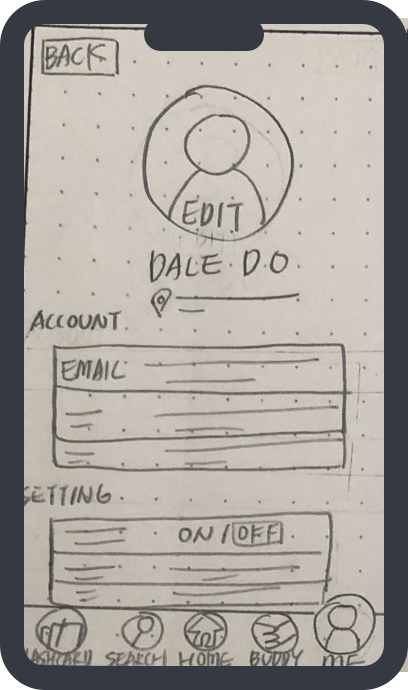 BACK
EDIT
DALE D.O
ACCOUNT.
EMAIL
SETTING
ON / OFF
SEARCH HOME BUDDY ME